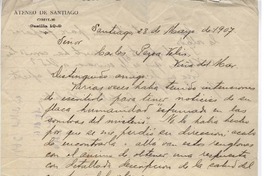 ATENEO DE SANTIAGO
Santiago 28 de Marzo de 1907
Señor
Carlos Pezoa Veliz
Viña del Mar
Distinguido amigo:
Varias veces he tenido intenciones
de escribirle para tener noticias de su
placa humanidad esfumada en las
sombras del misterio. No lo había hecho
por que se me perdió su dirección, acabo
de encontrarla i alla van estos renglones
con el ánimo de obtener una respuesta
con detallada descripcion de la salud del